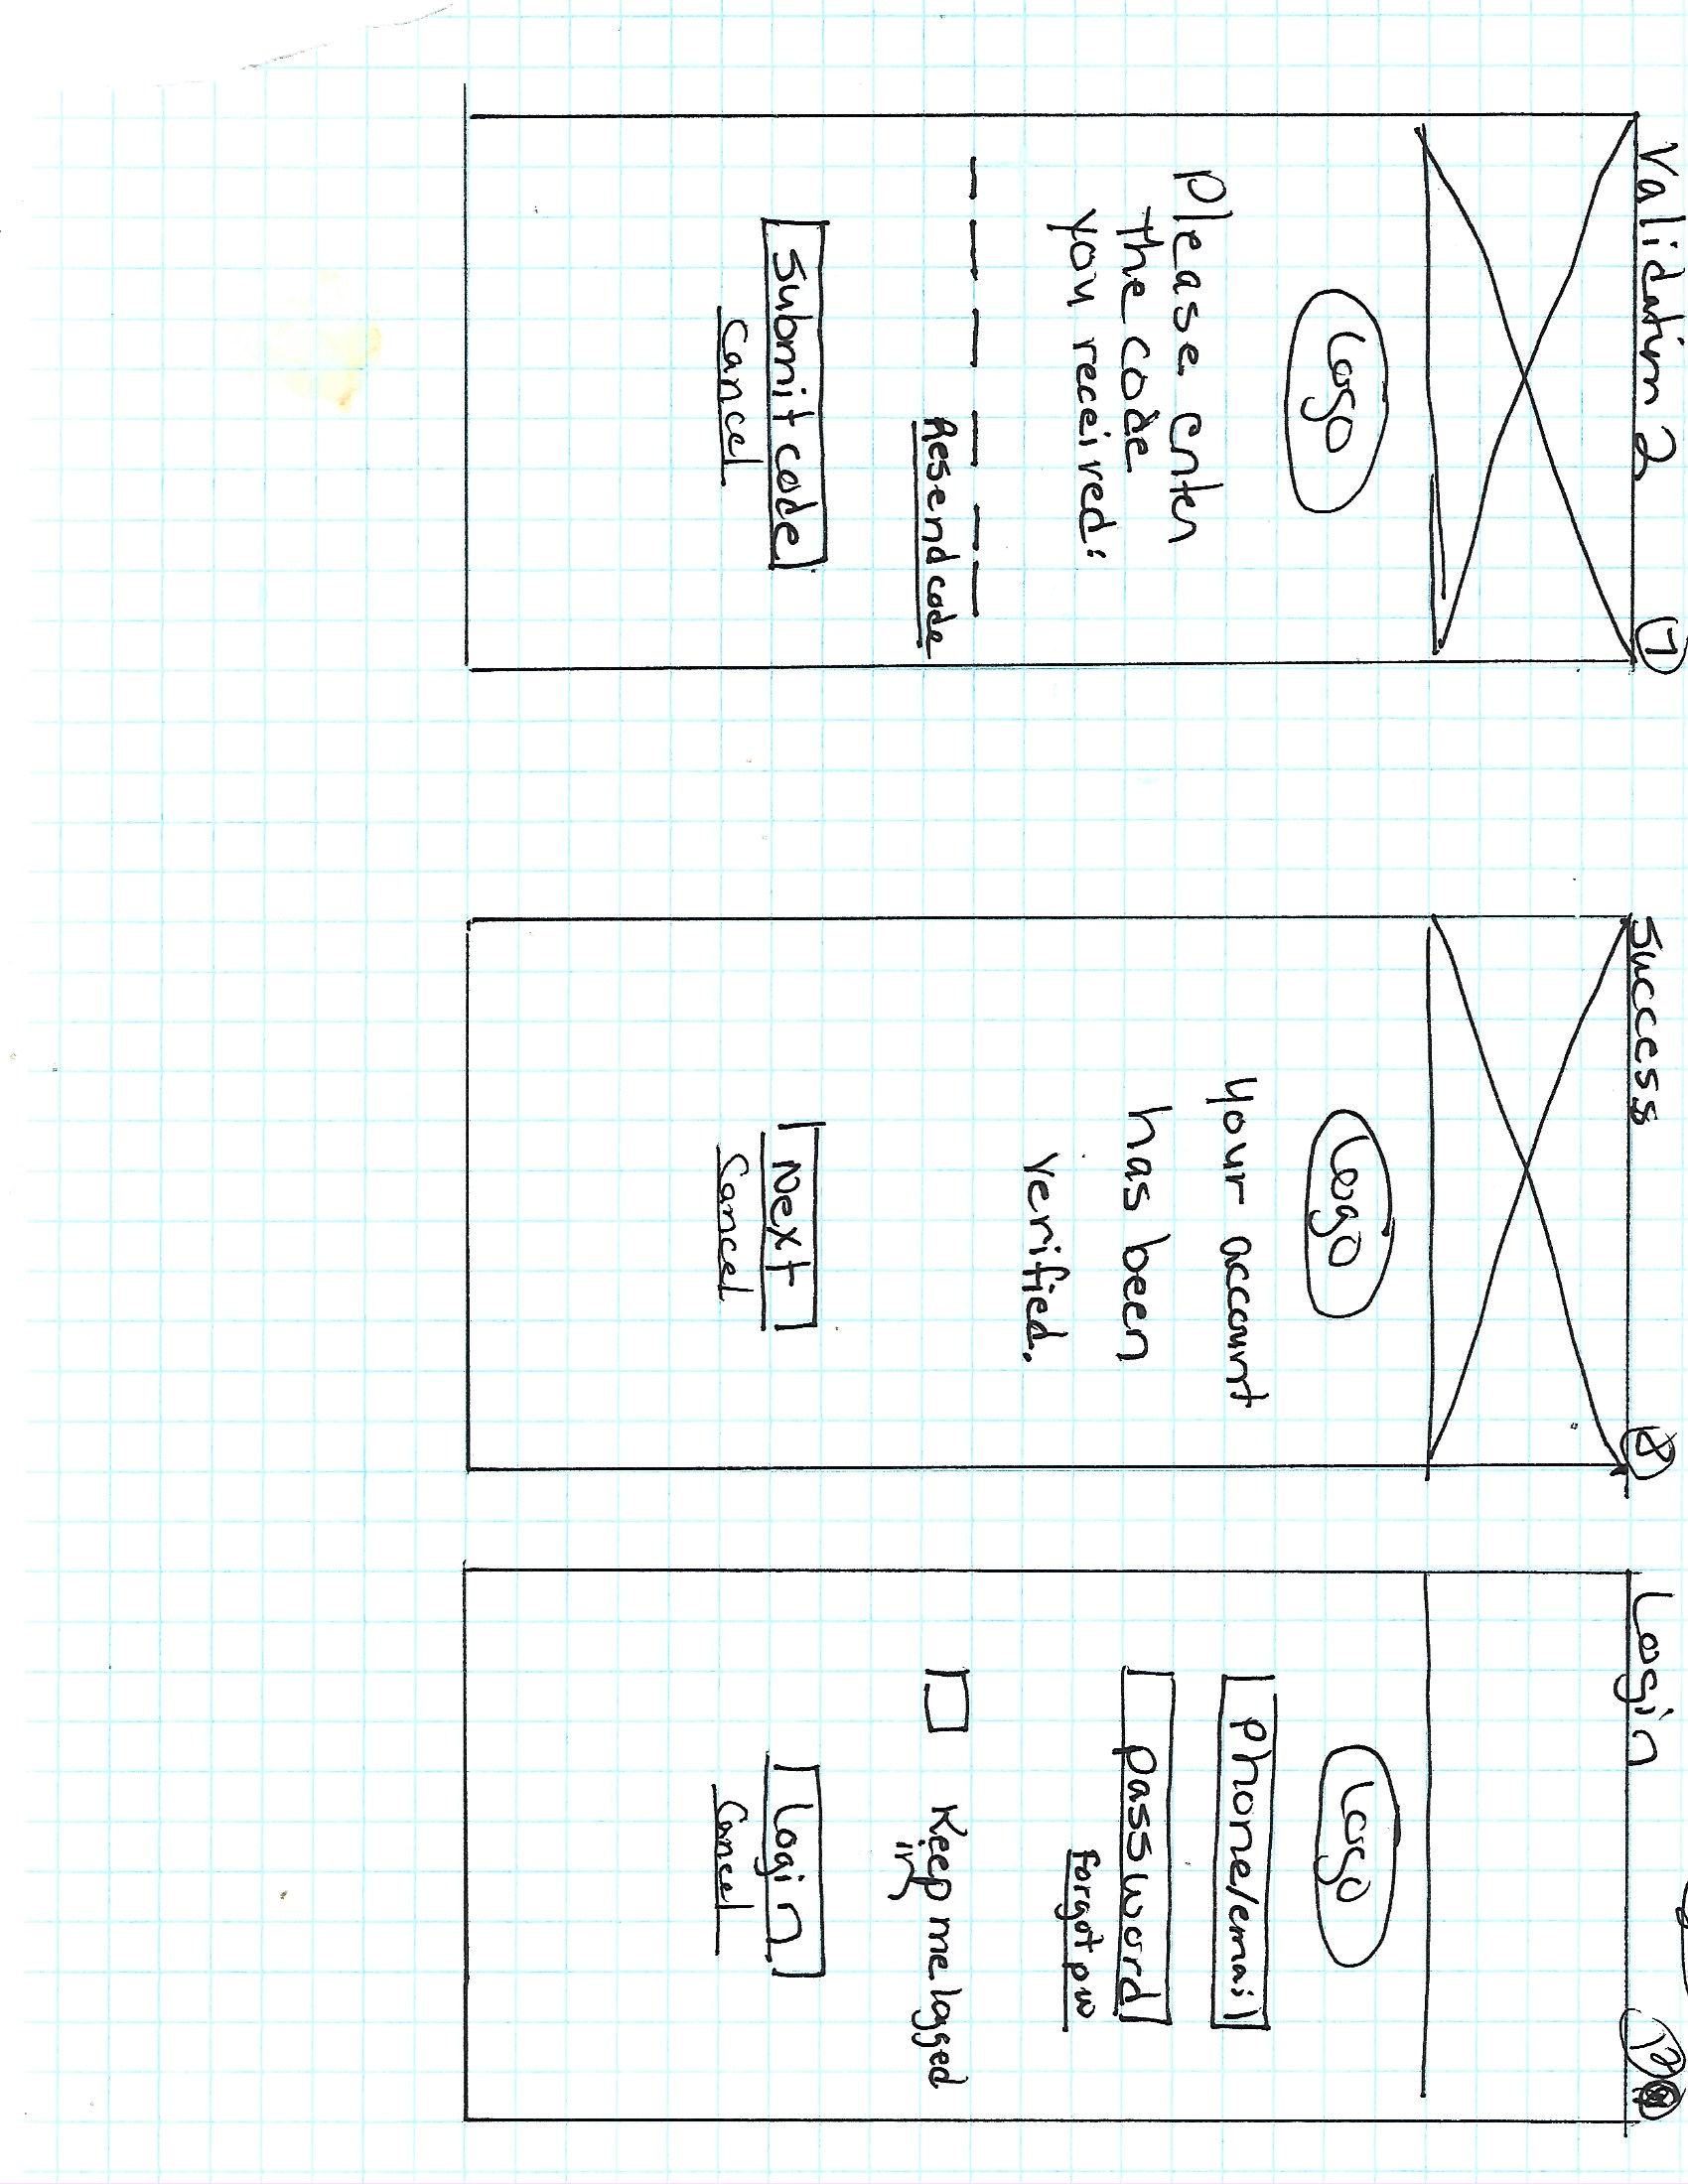 Validation 2
7
Logo
Please enter
the code
you received:
Resend code
Submit code
Cancel
Success
8
Logo
Your account
has been
verified.
Next
Cancel
Login
Logo
Phone/email
password
forgot pw
Keep me logged
in
Login
Cancel